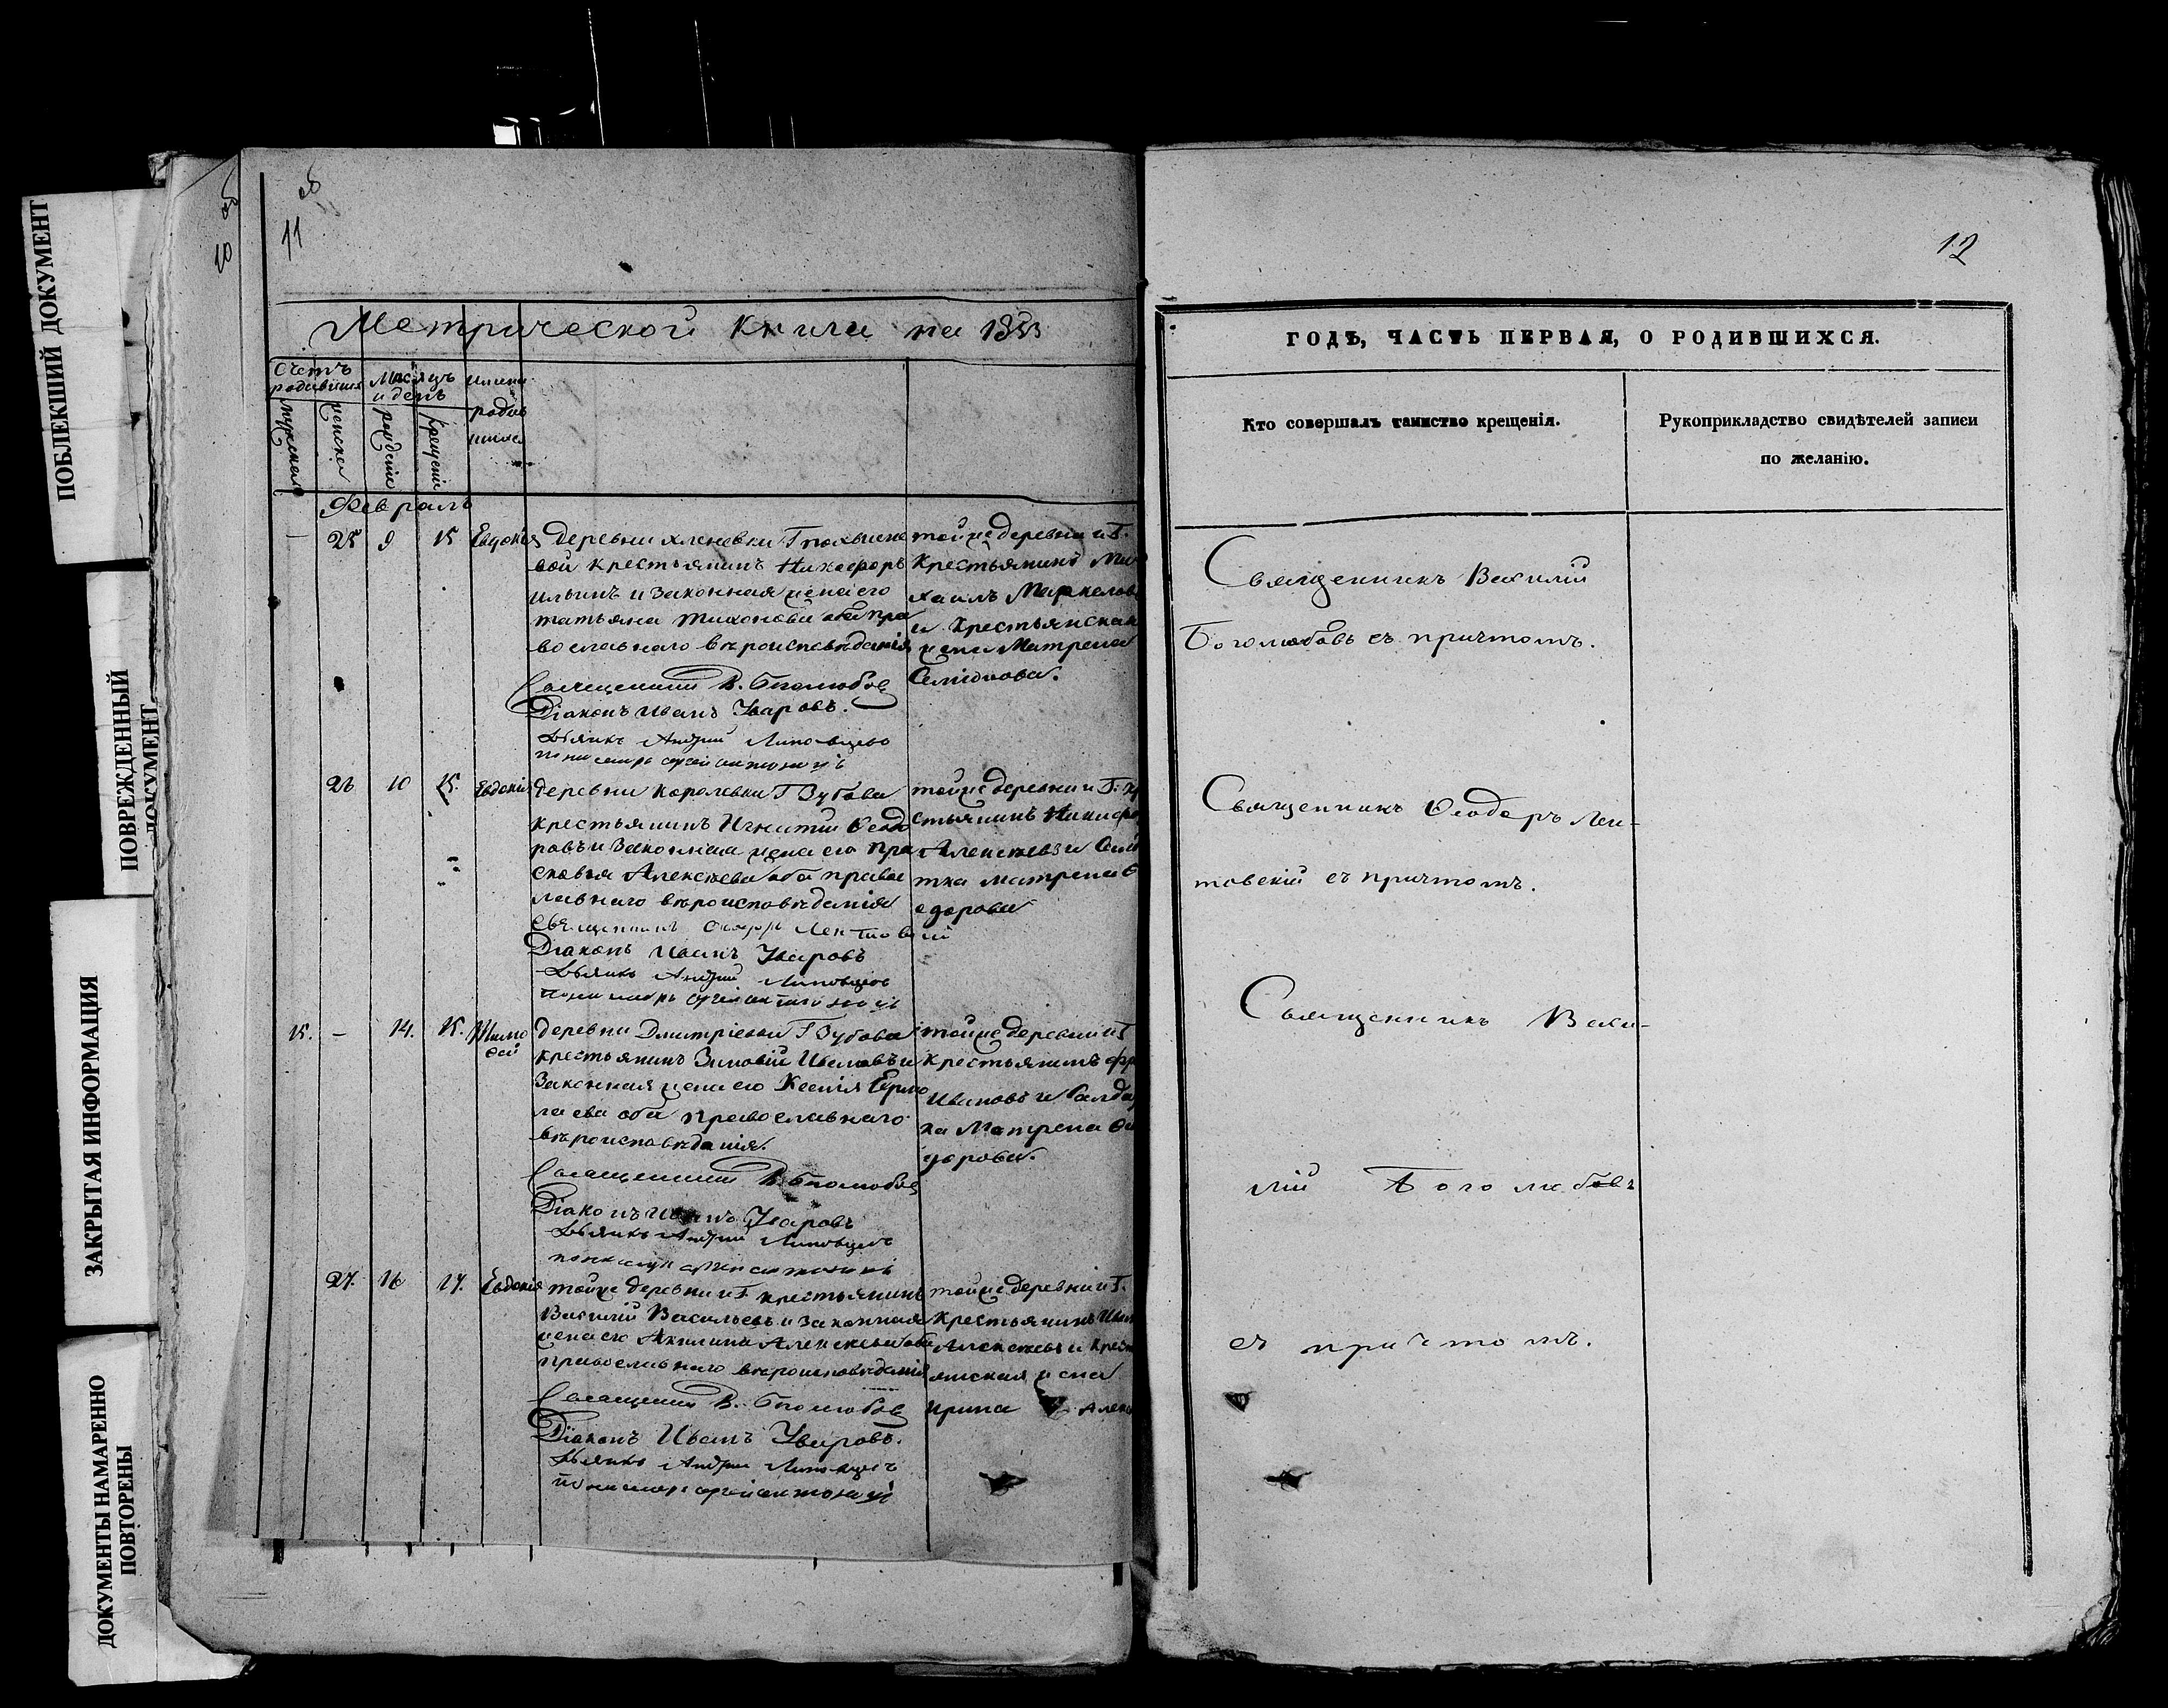 ПОБЛЕКШИЙ ДОКУМЕНТ
ПОВРЕЖДЕННЫЙ
ДОКУМЕНТ
ЗАКРЫТАЯ ИНФОРМАЦИЯ
ДОКУМЕНТЫ НАМАРЕННО
ПОВТОРЕНЫ
об
10
об
11
Метрической книги на 1853
Счетъ
родивших
мужска
женска
Мѣсяцъ
и день
рожденія
крещенія
имена
родив
шихся
Февраль
25 9 15 Евдокія
деревни
вой крестьянинъ Никифоръ
Ильинъ и законная жена его
татьяна тихонова оба пра
вославнаго вѣроисповѣданія
Священникъ В. Боголюбов
Діаконъ Иванъ Уваровъ.
Дьячикъ Андрей
пономарь сергей
тойже деревни и Г.
Крестьянинъ Ми
хаилъ Маркеловъ
и Крестьянская
жена Матрена
Семіонова.
26 10 15. Евдокія
деревни Королевки Г Зубова
крестьянинъ Игнатий Ѳеодо
ровъ и Законная жена его Пра
сковья Алексѣева оба правос
лавнаго вѣроисповѣданія
Священникъ Лентовский
Діаконъ Иванъ Уваровъ
Дьячикъ Андрей
пономарь сергей
тойже деревни и Г. кр
стьянинъ Никифо
Алексѣевъ и
тка матрена Ѳ
едорова
15. — 14. 15. Тимо
ѳей
деревни Дмитріевки Г Зубова
крестьянинъ Зиновій Ивановъ и
Законная жена его Ксенія Ермо
лаева оба православнаго
вѣроисповѣданія.
Священникъ В. Боголюбов
Діаконъ Иванъ Уваровъ
Дьячикъ Андрей
пономарь сергей
тойже деревни и Г
крестьянинъ
Ивановъ и Солдат
ка Матрена
27. 16 17. Евдокія
тойже деревни и Г. крестьянинъ
Василий Васильевъ и законная
жена его Акилина Алексѣева оба
православнаго вѣроисповѣданія
Священникъ В. Боголюбов
Діаконъ Иванъ Уваровъ.
Дьячикъ Андрей
пономарь сергей
тойже деревни и Г.
Крестьянинъ Иван
Алексѣевъ и Крест
янская жена
Ирина Алекс
12
ГОДЪ, ЧАСТЬ ПЕРВАЯ, О РОДИВШИХСЯ.
Кто совершалъ таинство крещенія.
Рукоприкладство свидѣтелей записи
по желанію.
Священникъ Василій
Боголюбовъ съ причтомъ.
Священникъ Ѳеодоръ Лен-
товскій съ причтомъ.
Священникъ Васи-
лій Боголюбовъ
съ причтомъ.